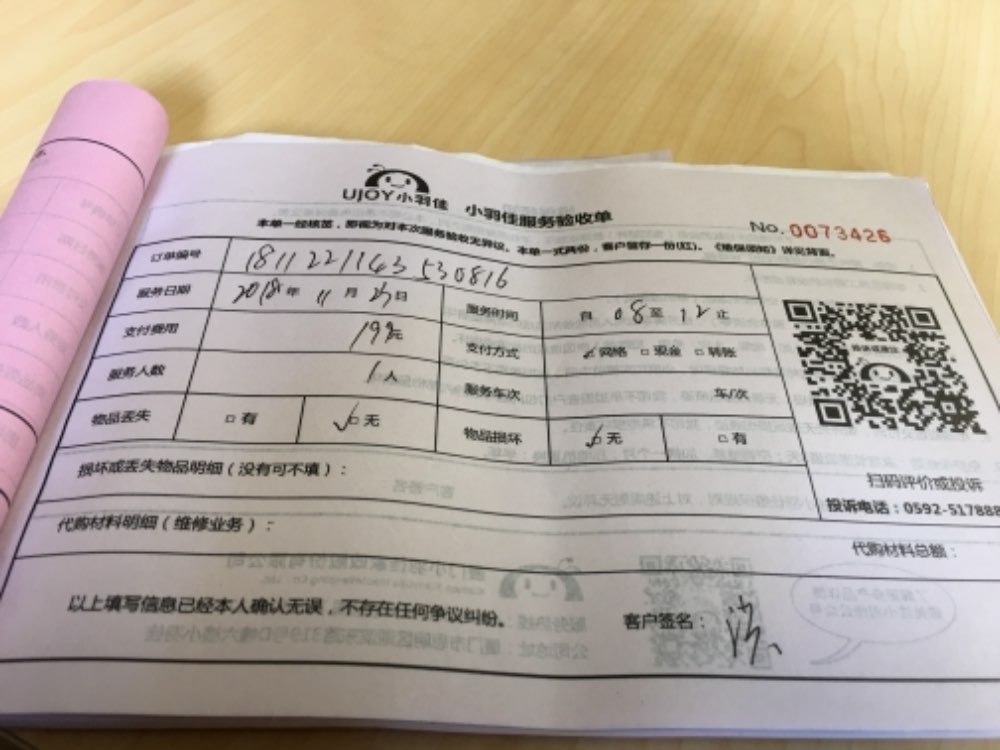 UJOY小羽佳 小羽佳服务验收单
No.0073426
本单一经核签，即视为对本次服务验收无异议。本单一式两份，客户留存一份(红)。《维保须知》详见背面。
订单编号 1811221143530816
服务日期 2018年 11月 23日 服务时间 自 08 至 12 止
支付费用 元 支付方式 ☑网络 □现金 □转账
服务人数 1人 服务车次 车/次
物品丢失 □有 ☑无 物品损坏 ☑无 □有
损坏或丢失物品明细（没有可不填）：
扫码评价或投诉
投诉电话：0592-517888
代购材料明细（维修业务）：
代购材料总额：
以上填写信息已经本人确认无误，不存在任何争议纠纷。 客户签名：